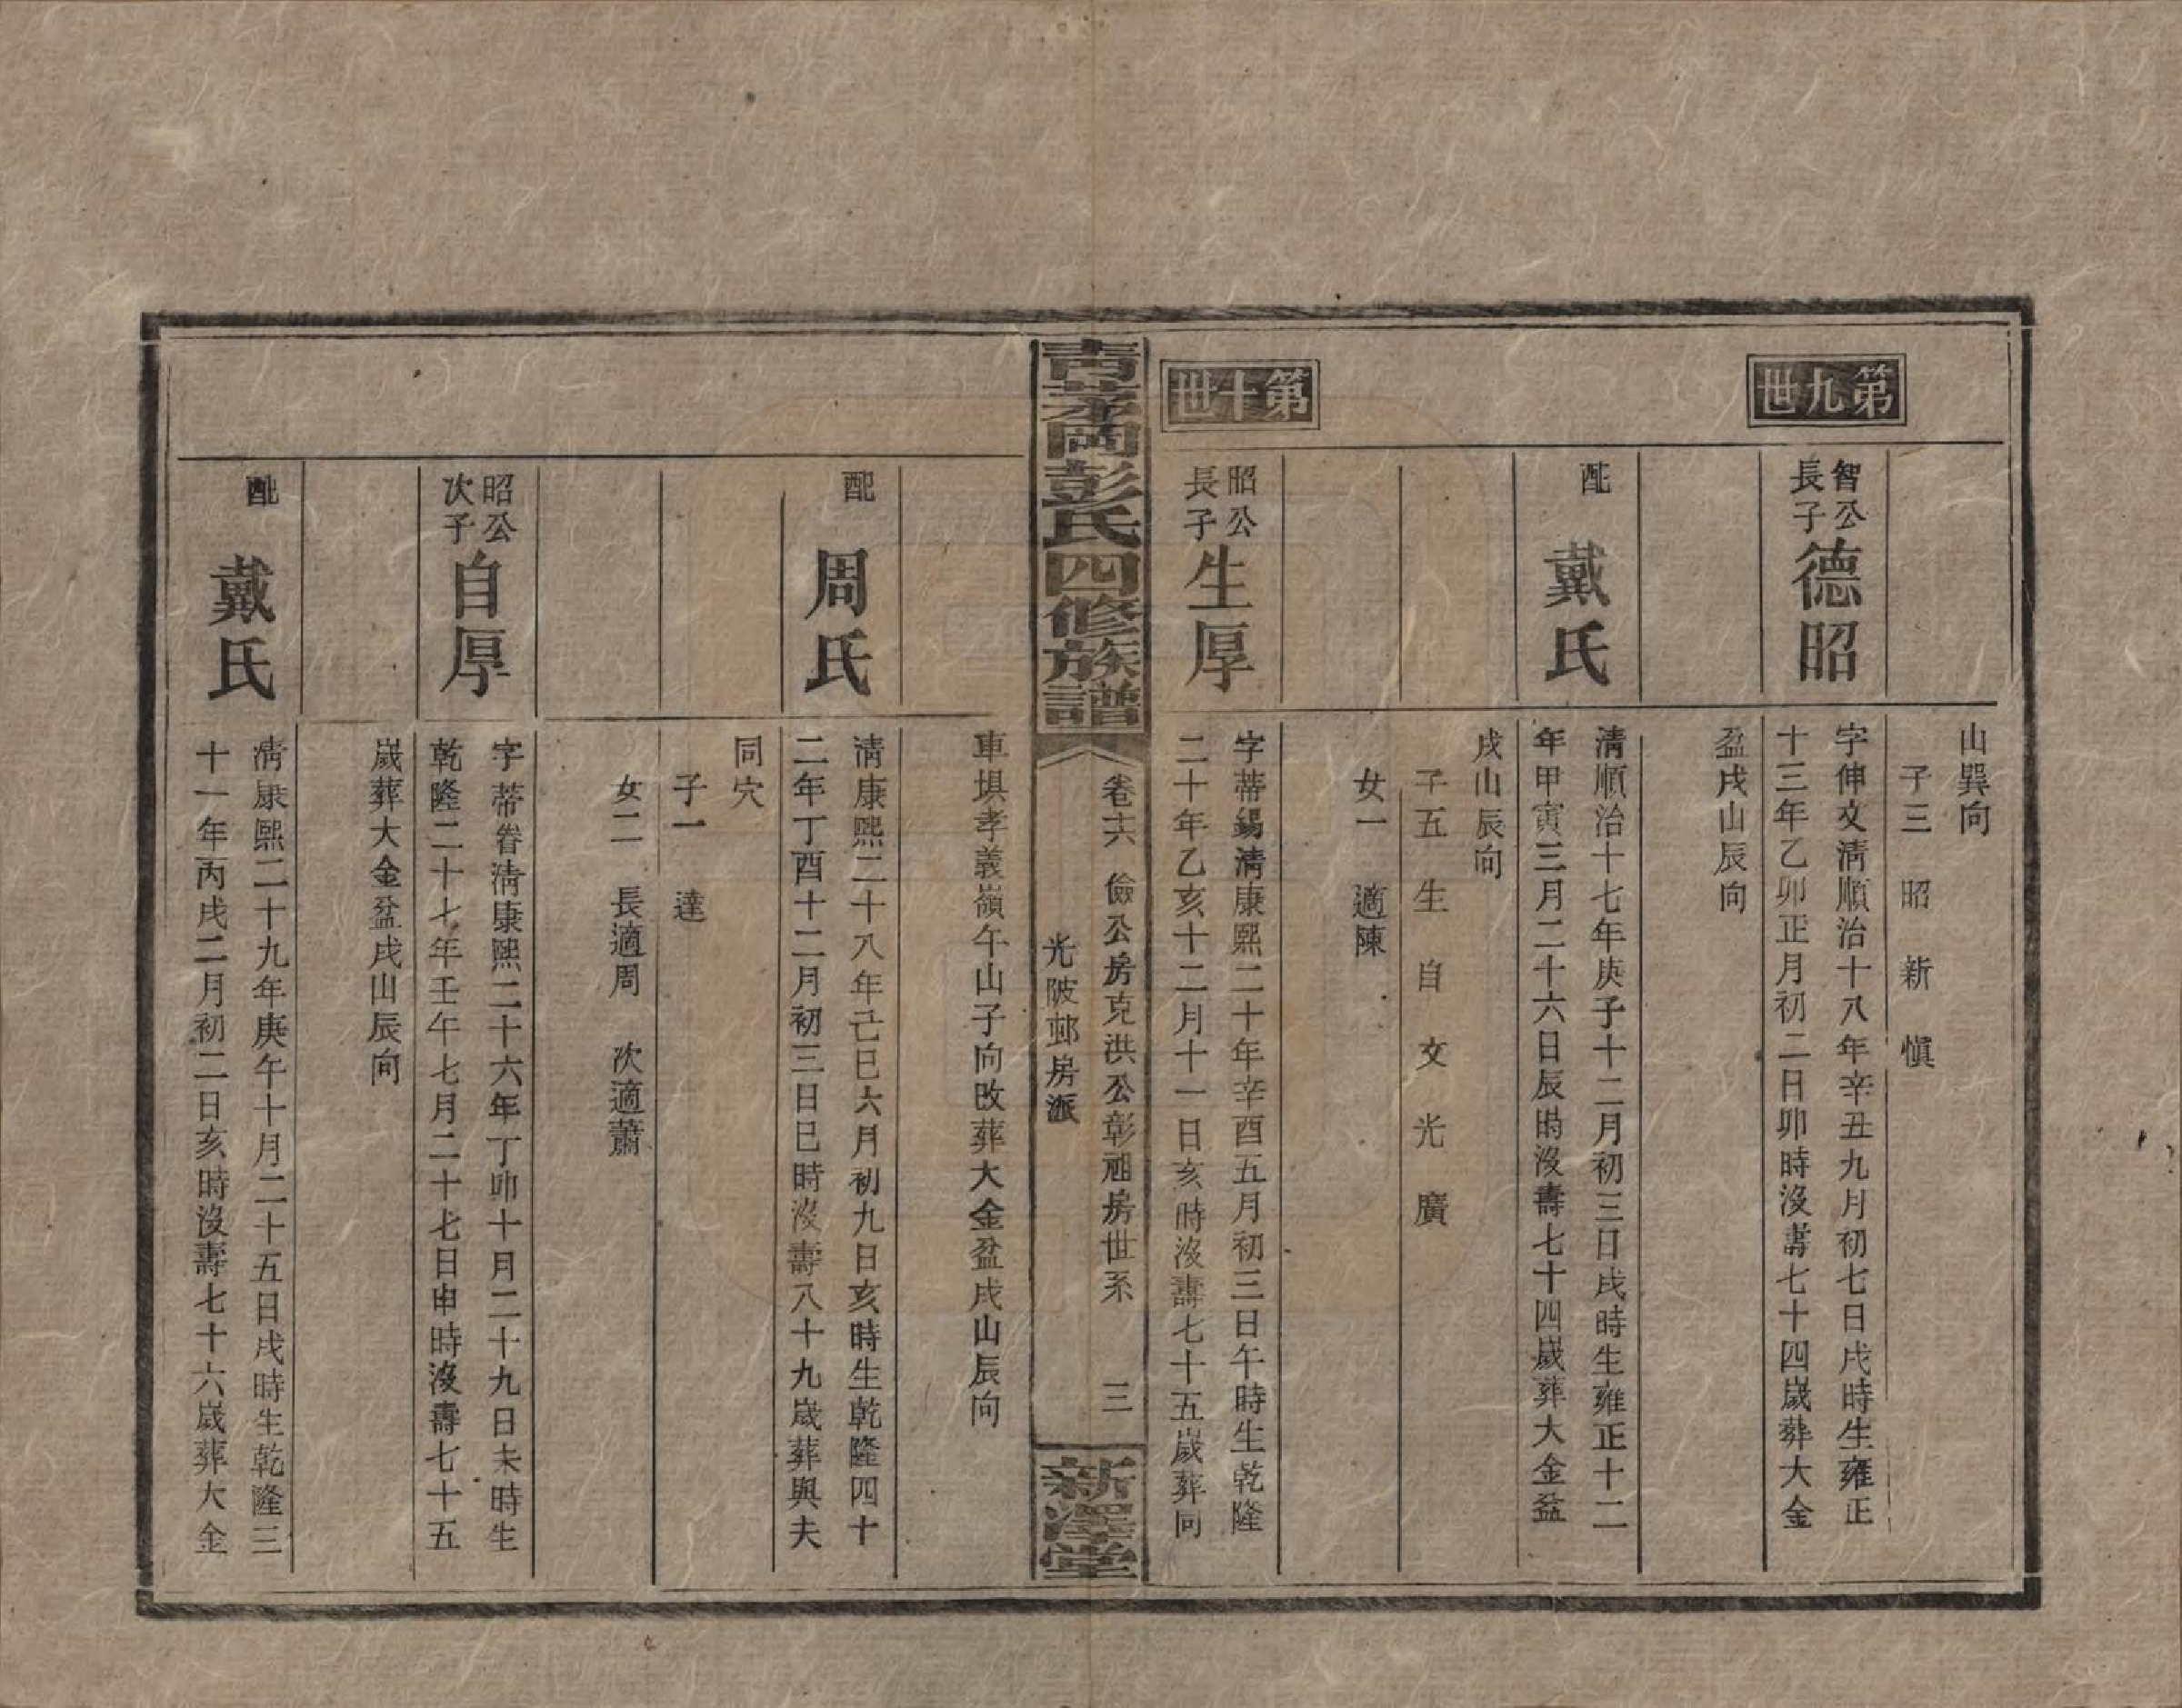 山巽向
子三　昭　新　愼
第九世
智公長子德昭
字伸文淸順治十八年辛丑九月初七日戌時生雍正
十三年乙卯正月初二日卯時沒壽七十四歲葬大金
盆戌山辰向
配　戴氏
清順治十七年庚子十二月初三日戌時生雍正十二
年甲寅三月二十六日辰時沒壽七十四歲葬大金盆
戌山辰向
子五　生　自　文　光　廣
女一　適陳
第十世
昭公長子生厚
字蒂錫淸康熙二十年辛酉五月初三日午時生乾隆
二十年乙亥十二月十一日亥時沒壽七十五歲葬同
青茅岡彭氏四修族譜
卷十六　儉公房克洪公彰祖房世系　三
光陂邨房派
新澤堂
車埧孝義嶺午山子向改葬大金盆戌山辰向
配　周氏
清康熙二十八年己巳六月初九日亥時生乾隆四十
二年丁酉十二月初三日巳時沒壽八十九歲葬與夫
同穴
子一　達
女二　長適周　次適蕭
昭公次子自厚
字蒂眷淸康熙二十六年丁卯十月二十九日未時生
乾隆二十七年壬午七月二十七日申時沒壽七十五
歲葬大金盆戌山辰向
配　戴氏
淸康熙二十九年庚午十月二十五日戌時生乾隆三
十一年丙戌二月初二日亥時沒壽七十六歲葬大金